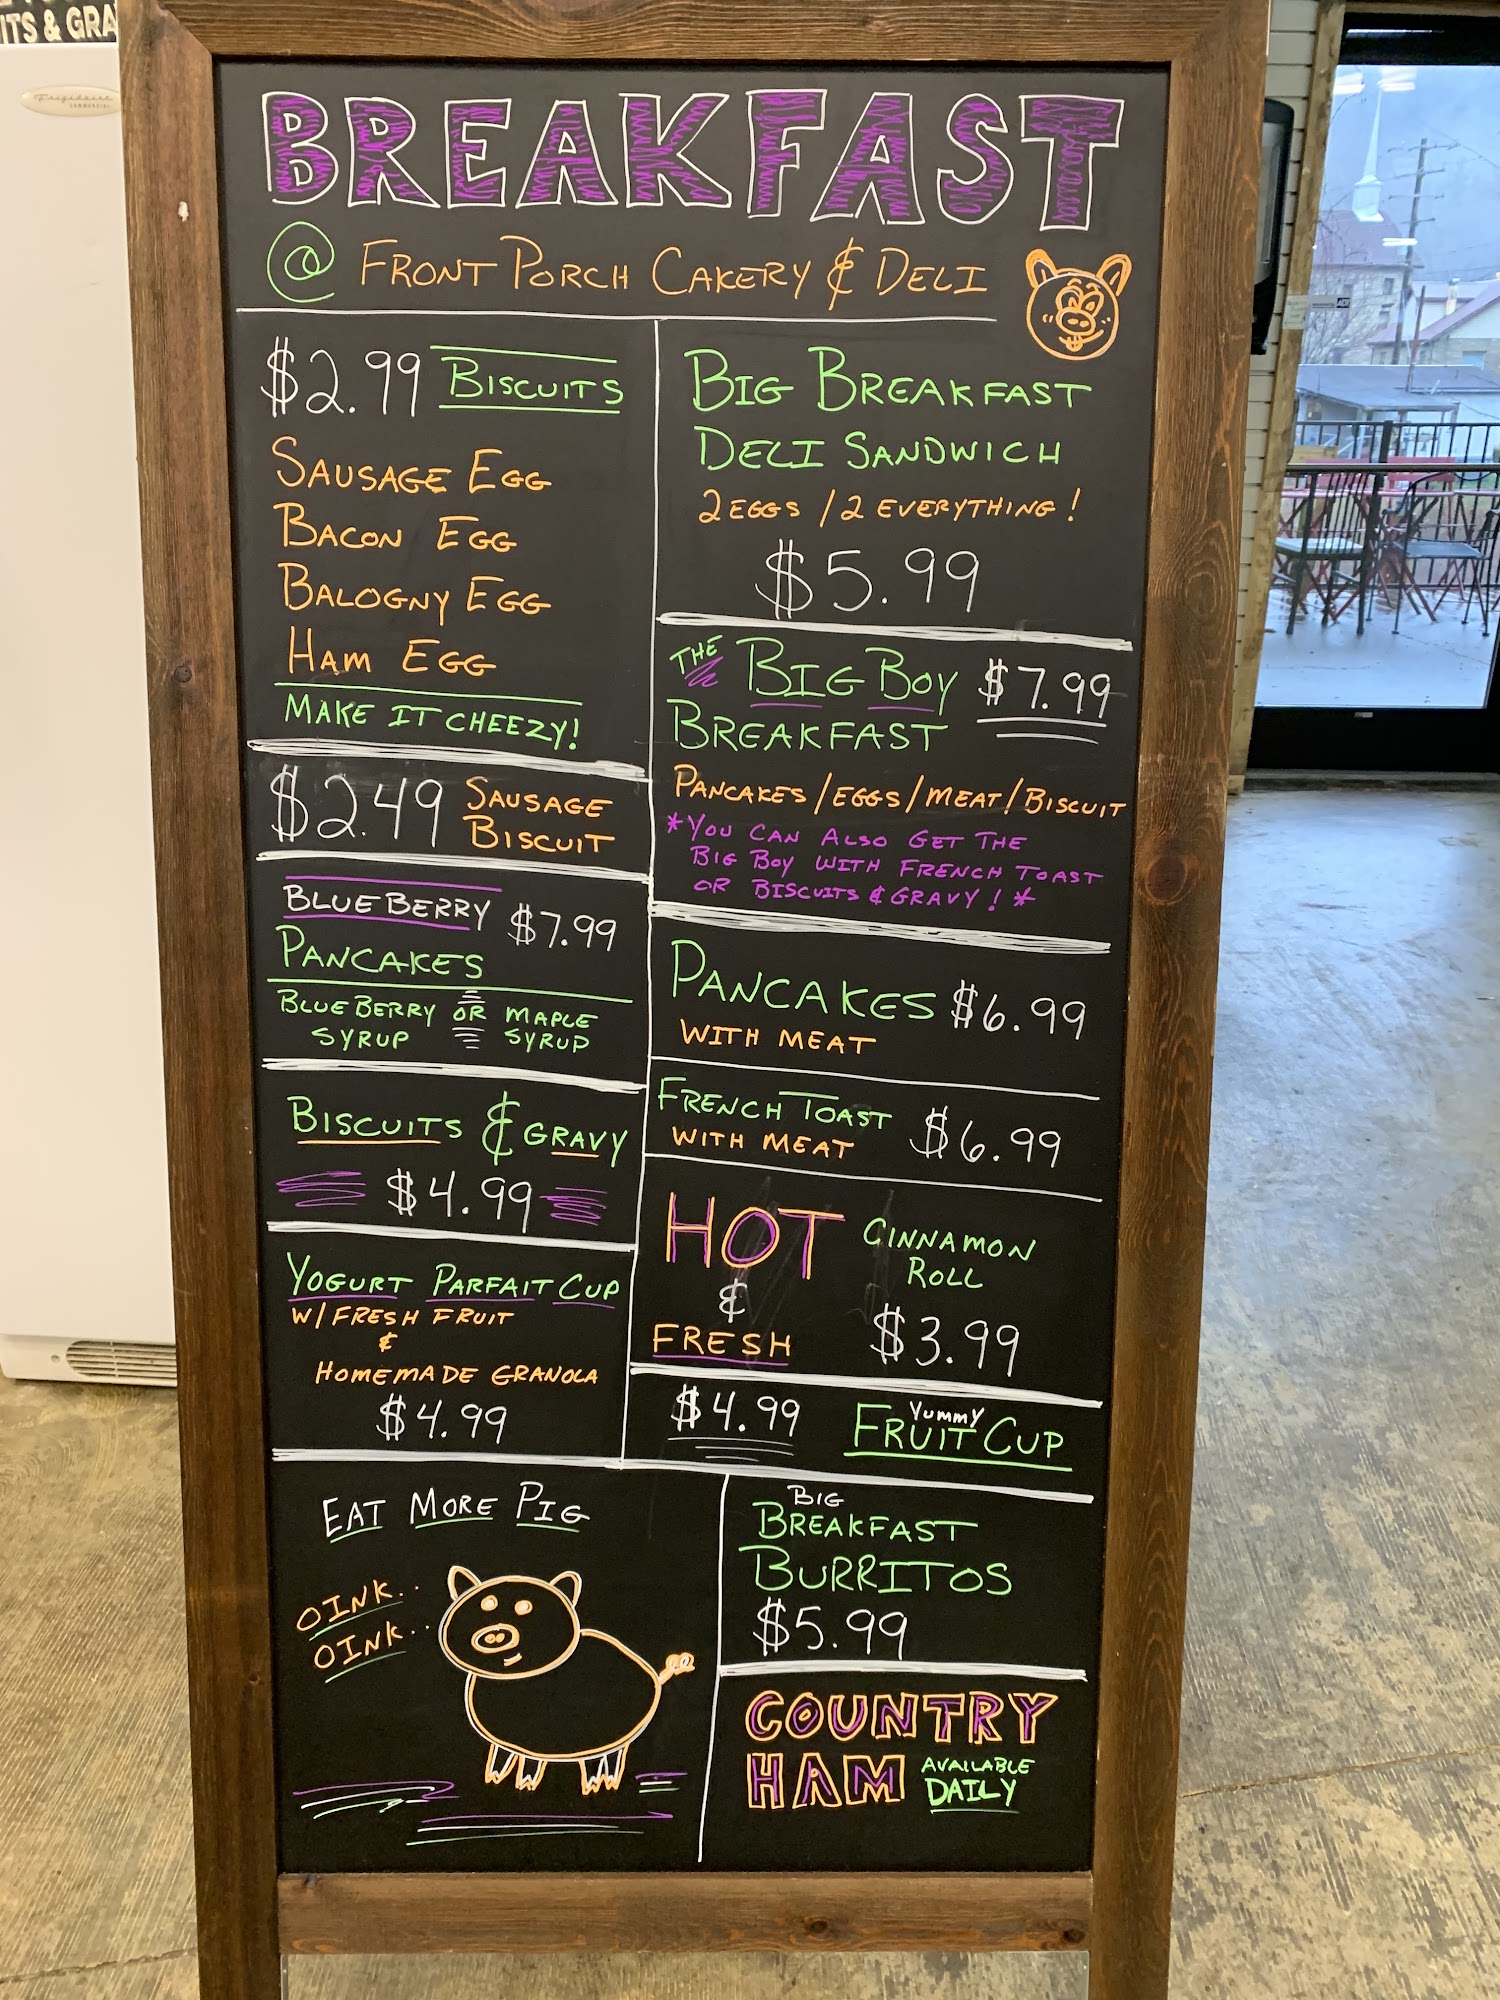 ITS & GRA
Frigidaire
COMMERCIAL
BREAKFAST
@ FRONT PORCH CAKERY & DELI
$2.99 BISCUITS
SAUSAGE EGG
BACON EGG
BALOGNY EGG
HAM EGG
MAKE IT CHEEZY!
$2.49 SAUSAGE
BISCUIT
BLUEBERRY $7.99
PANCAKES
BLUEBERRY OR MAPLE
SYRUP SYRUP
BISCUITS & GRAVY
$4.99
YOGURT PARFAIT CUP
W/FRESH FRUIT
&
HOMEMADE GRANOLA
$4.99
BIG BREAKFAST
DELI SANDWICH
2 EGGS / 2 EVERYTHING!
$5.99
THE BIG BOY $7.99
BREAKFAST
PANCAKES/EGGS/MEAT/BISCUIT
*YOU CAN ALSO GET THE
BIG BOY WITH FRENCH TOAST
OR BISCUITS & GRAVY!*
PANCAKES $6.99
WITH MEAT
FRENCH TOAST $6.99
WITH MEAT
HOT
&
FRESH
CINNAMON
ROLL
$3.99
$4.99 YUMMY
FRUIT CUP
EAT MORE PIG
OINK..
OINK..
BIG
BREAKFAST
BURRITOS
$5.99
COUNTRY
HAM AVAILABLE
DAILY